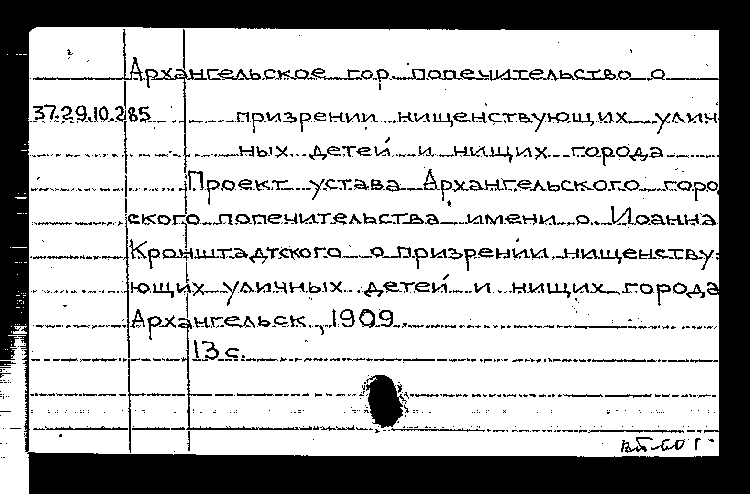 Архангельское гор. попечительство о
37.29.10.285 призрении нищенствующих улич
ных детей и нищих города
Проект устава Архангельского горо
ского попечительства имени о. Иоанна
Кронштадтского о призрении нищенству-
ющих уличных детей и нищих города
Архангельск, 1909.
13 с.